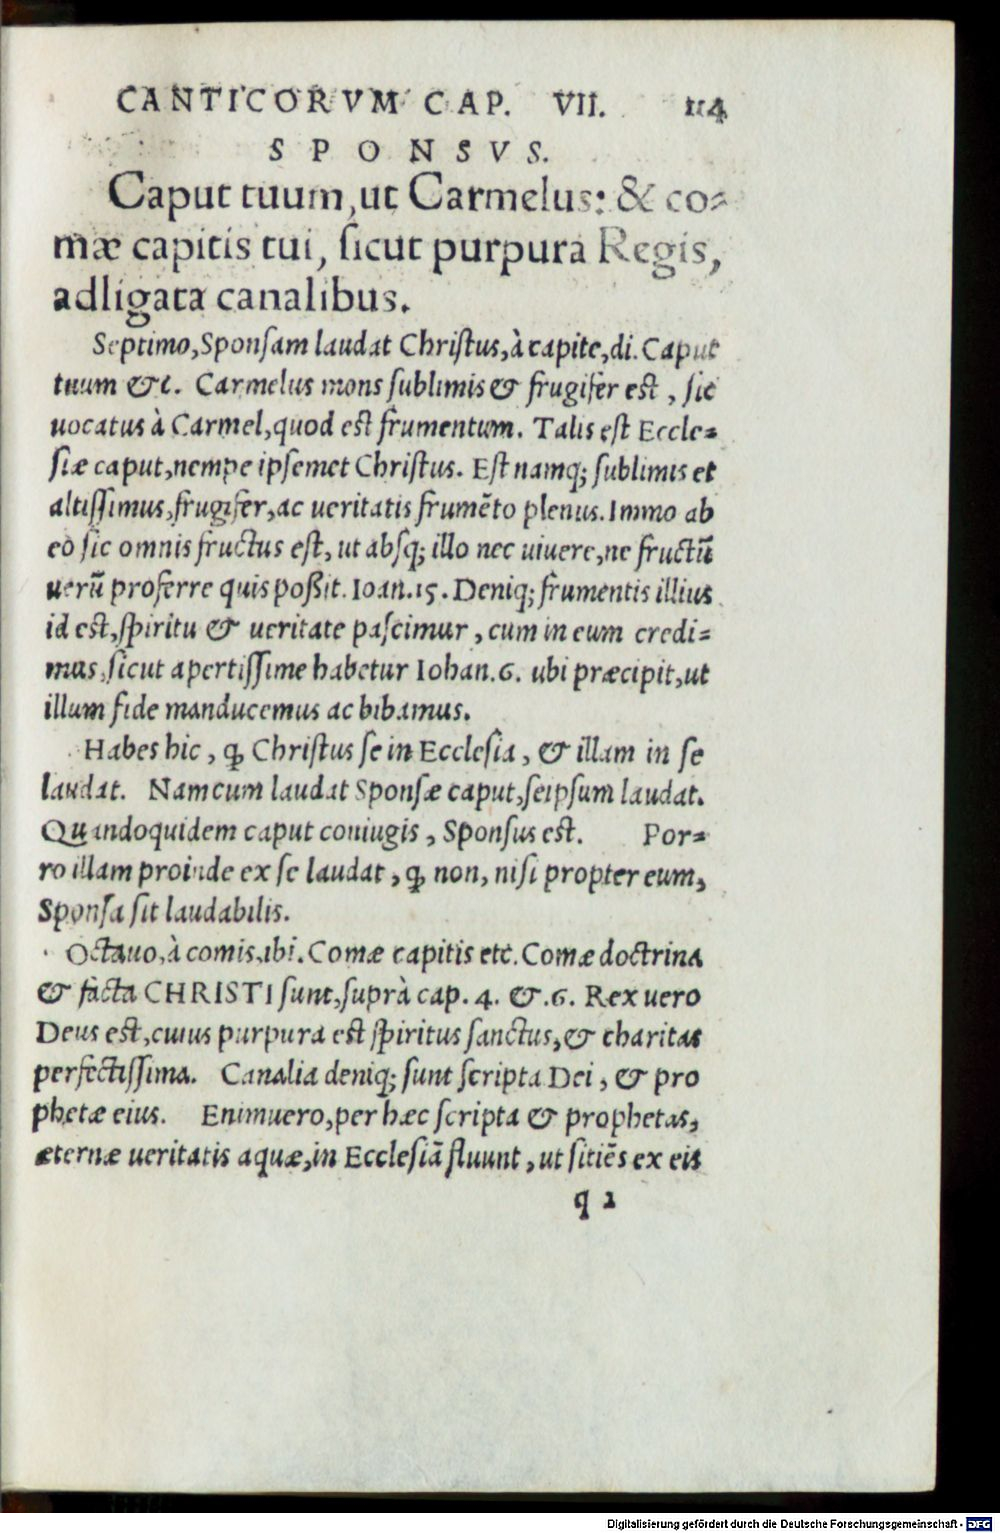 CANTICORVM CAP. VII. 114
SPONSVS.
Caput tuum, ut Carmelus: & co-
mæ capitis tui, sicut purpura Regis,
adligata canalibus.
Septimo, Sponsam laudat Christus, à capite, di. Caput
tuum &c. Carmelus mons sublimis & frugifer est, sic
uocatus à Carmel, quod est frumentum. Talis est Eccle-
siæ caput, nempe ipsemet Christus. Est namq; sublimis et
altissimus, frugifer, ac ueritatis frumẽto plenus. Immo ab
eo sic omnis fructus est, ut absq; illo nec uiuere, ne fructũ
uerũ proferre quis poßit. Ioan. 15. Deniq; frumentis illius
id est, spiritu & ueritate pascimur, cum in eum credi-
mus, sicut apertissime habetur Iohan. 6. ubi præcipit, ut
illum fide manducemus ac bibamus.
Habes hic, ꝙ Christus se in Ecclesia, & illam in se
laudat. Nam cum laudat Sponsæ caput, seipsum laudat.
Quandoquidem caput coniugis, Sponsus est. Por-
ro illam proinde ex se laudat, ꝙ non, nisi propter eum,
Sponsa sit laudabilis.
Octauo, à comis, ibi. Comæ capitis etc. Comæ doctrina
& facta CHRISTI sunt, suprà cap. 4. &. 6. Rex uero
Deus est, cuius purpura est spiritus sanctus, & charitas
perfectissima. Canalia deniq; sunt scripta Dei, & pro
phetæ eius. Enimuero, per hæc scripta & prophetas,
æternæ ueritatis aquæ, in Ecclesiã fluunt, ut sitiẽs ex eis
q 2
Digitalisierung gefördert durch die Deutsche Forschungsgemeinschaft - DFG